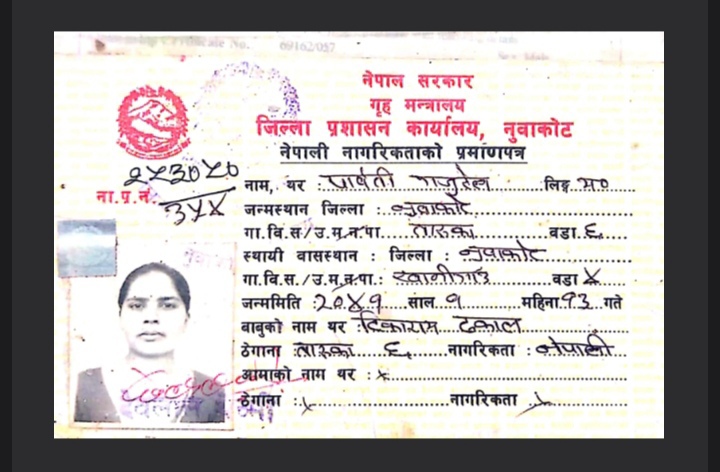 Certificate No. 69162/057
नेपाल सरकार
गृह मन्त्रालय
जिल्ला प्रशासन कार्यालय, नुवाकोट
नेपाली नागरिकताको प्रमाणपत्र
ना.प्र.नं.
नाम, थर : पार्वती लिङ्ग म०
जन्मस्थान जिल्ला : नुवाकोट
गा.वि.स./उ.म.न.पा. तारुका वडा ६
स्थायी वासस्थान : जिल्ला : नुवाकोट
गा.वि.स./उ.म.न.पा.: वडा ४
जन्ममिति २०४१ साल १ महिना १३ गते
बाबुको नाम थर : टिकाराम ढकाल
ठेगाना तारुका ६ नागरिकता : नेपाली
आमाको नाम थर : x
ठेगाना : x नागरिकता x